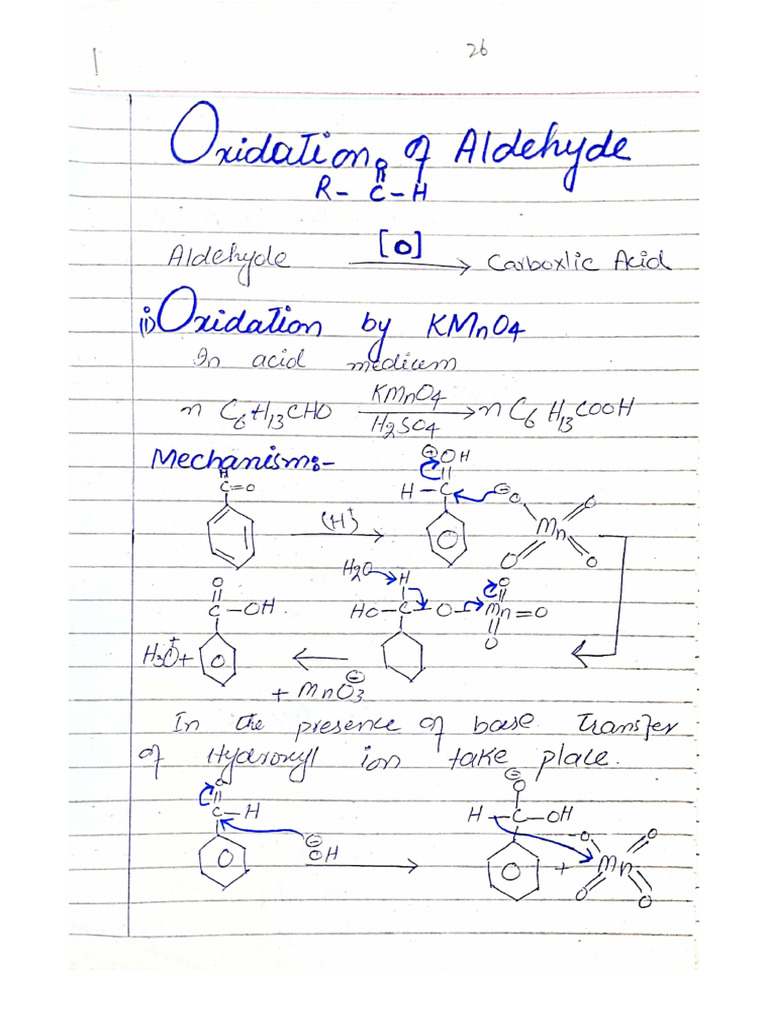 26
Oxidation of Aldehyde
O
R - C - H
[O]
Aldehyde → Carboxlic Acid
(i) Oxidation by KMnO4
In acid medium
n C6H13CHO KMnO4 / H2SO4 → n C6H13COOH
Mechanism:-
H
C=O
(H⁺)
⊕OH
H - C
⊖O
O
Mn
O
O
H2O
H
O
HO - C - O - Mn = O
O
O
C - OH
H3O⁺ +
+ MnO3⊖
In the presence of base transfer
of Hydroxyl ion take place.
O
C - H
⊖OH
⊖
O
H - C - OH
+
-O
O
Mn
O
O